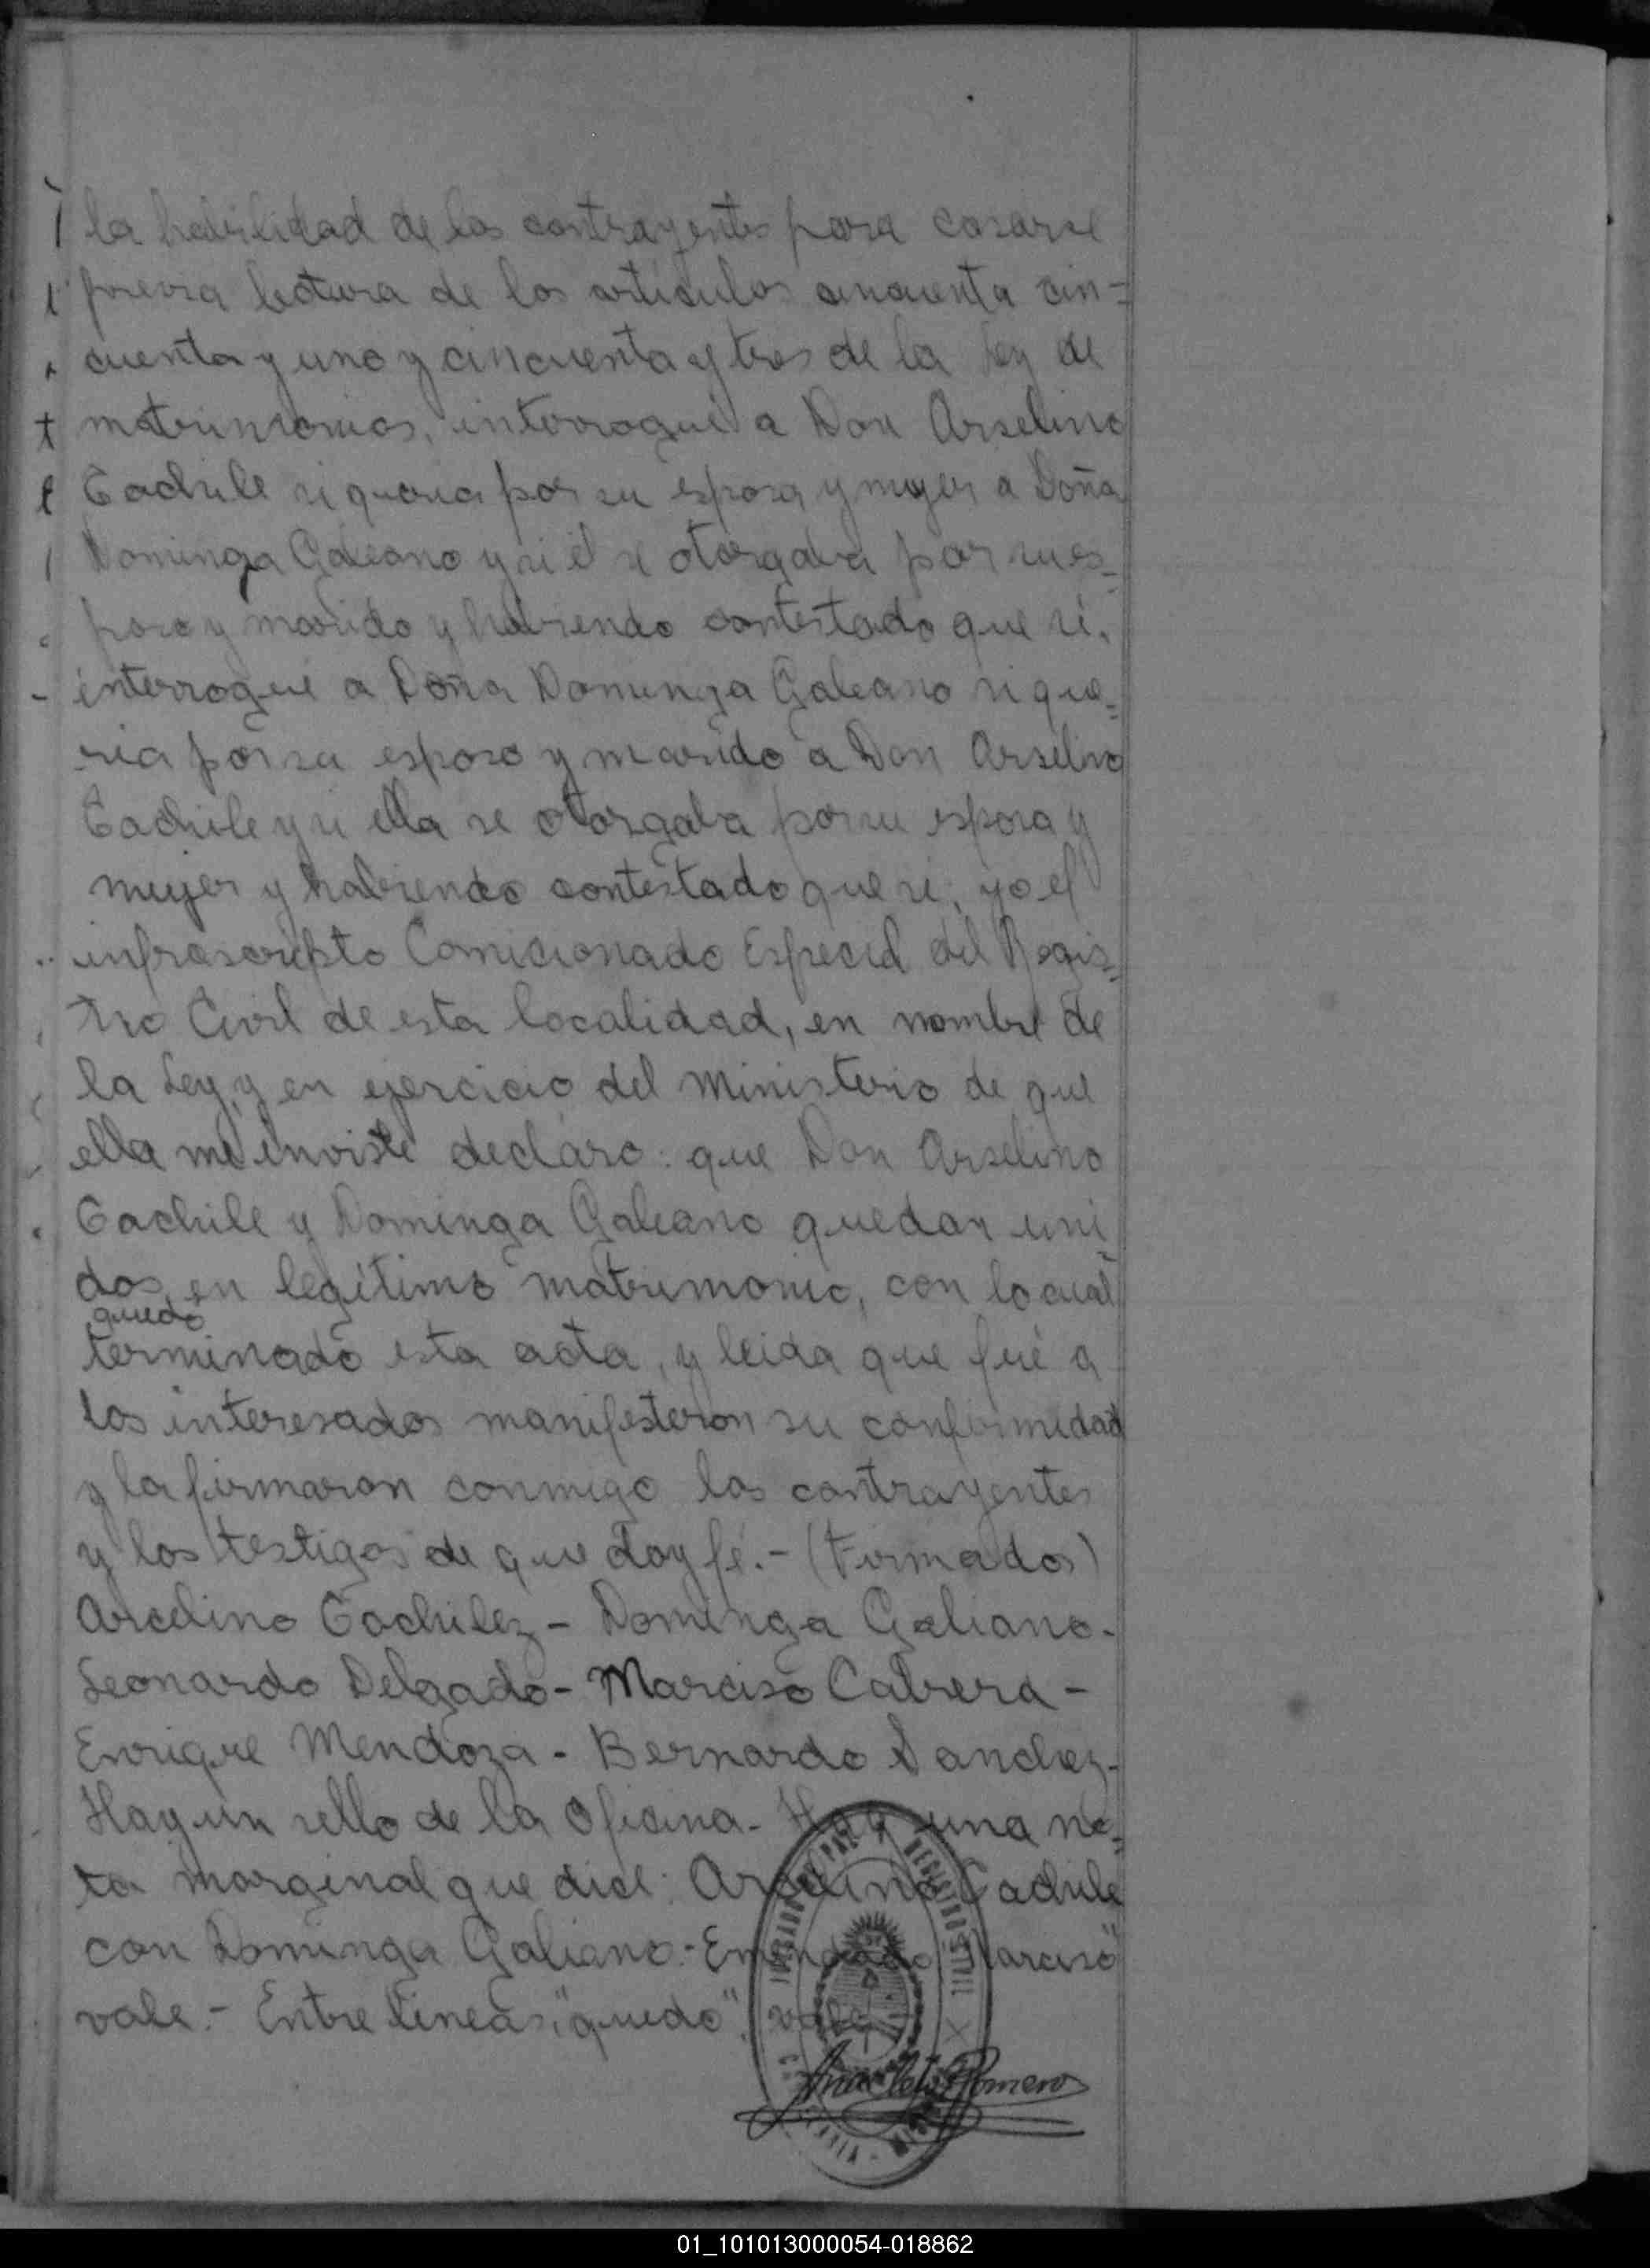 la habilidad de los contrayentes para casarse
previa lectura de los artículos cincuenta cin=
cuenta y uno y cincuenta y tres de la Ley de
matrimonios, interrogué a Don Arselino
Cachile si queria por su esposa y mujer a Doña
Dominga Galeano y si él se otorgaba por su es=
poso y marido y habiendo contestado que si,
interrogué a Doña Dominga Galeano si que=
ria por su esposo y marido a Don Arselino
Cachile y si ella se otorgaba por su esposa y
mujer y habiendo contestado que si, yo el
infrascripto Comicionado Especial del Regis=
tro Civil de esta localidad, en nombre de
la Ley y en ejercicio del Ministerio de que
ella me inviste declaro: que Don Arselino
Cachile y Dominga Galeano quedan uni
dos, en legítimo matrimonio, con lo cual
quedo
terminado esta acta, y leida que fué a
los interesados manifesteron su conformidad
y la firmaron conmigo los contrayentes
y los testigos de que doy fé.- (Firmados)
Arcelino Cachilez - Dominga Galiano.
Leonardo Delgado - Marciso Cabrera -
Enrique Mendoza - Bernardo Sanchez-
Hay un sello de la Oficina- Hay una no=
ta marginal que dice: Arcelino Cachile
con Dominga Galiano.- Enmendado "Narciso"
vale.- Entre lineas, "quedo". vale
Anacleto Romero
01_101013000054-018862